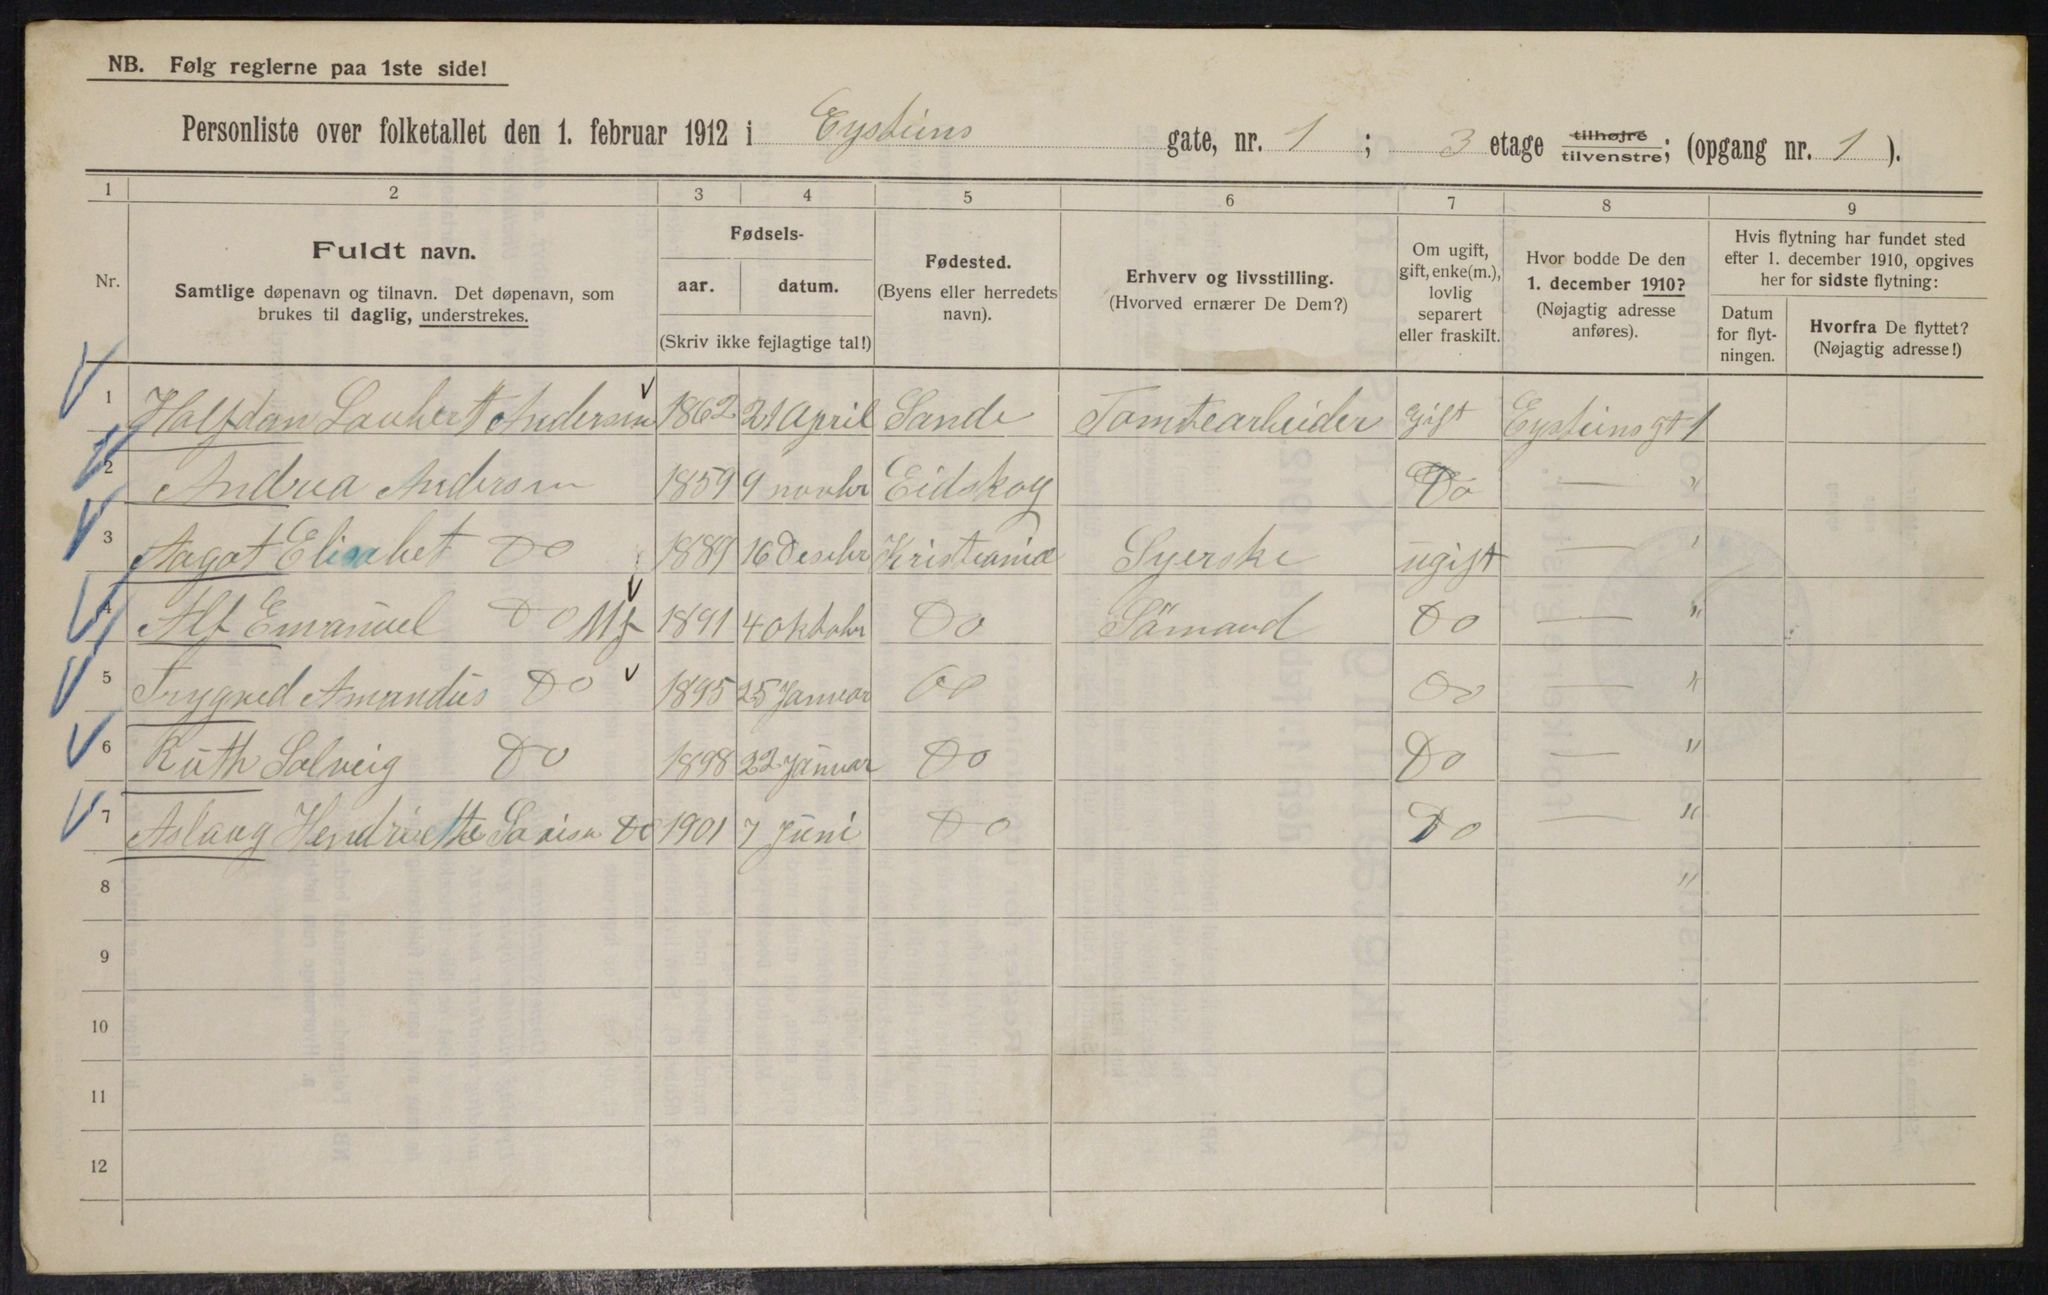 NB. Følg reglerne paa 1ste side!
Personliste over folketallet den 1. februar 1912 i Eysteins gate, nr. 1 ; 3 etage tilhøjre tilvenstre; (opgang nr. 1 ).
1 2 3 4 5 6 7 8 9
Nr.
Fuldt navn.
Samtlige døpenavn og tilnavn. Det døpenavn, som
brukes til daglig, understrekes.
Fødsels-
aar. datum.
(Skriv ikke fejlagtige tal!)
Fødested.
(Byens eller herredets
navn).
Erhverv og livsstilling.
(Hvorved ernærer De Dem?)
Om ugift,
gift, enke(m.),
lovlig
separert
eller fraskilt.
Hvor bodde De den
1. december 1910?
(Nøjagtig adresse
anføres).
Hvis flytning har fundet sted
efter 1. december 1910, opgives
her for sidste flytning:
Datum
for flyt-
ningen.
Hvorfra De flyttet?
(Nøjagtig adresse!)
1 Halfdan Andersen 1862 21 April Sande Tomtearbeider Gift Eysteins gt 1
2 Andrea Andersen 1859 9 novbr Eidskog Do — "
3 Aagot Elisabet Do 1889 16 Desebr Kristiania Syerske ugift — "
4 Alf Emanuel Do 1891 4 oktobr Do Sömand Do — "
5 Trygved Amandus Do 1895 25 Januar Do Do — "
6 Ruth Solveig Do 1898 22 Januar Do Do — "
7 Aslaug Hendriette Do 1901 7 Juni Do Do — "
8 "
9
10
11
12